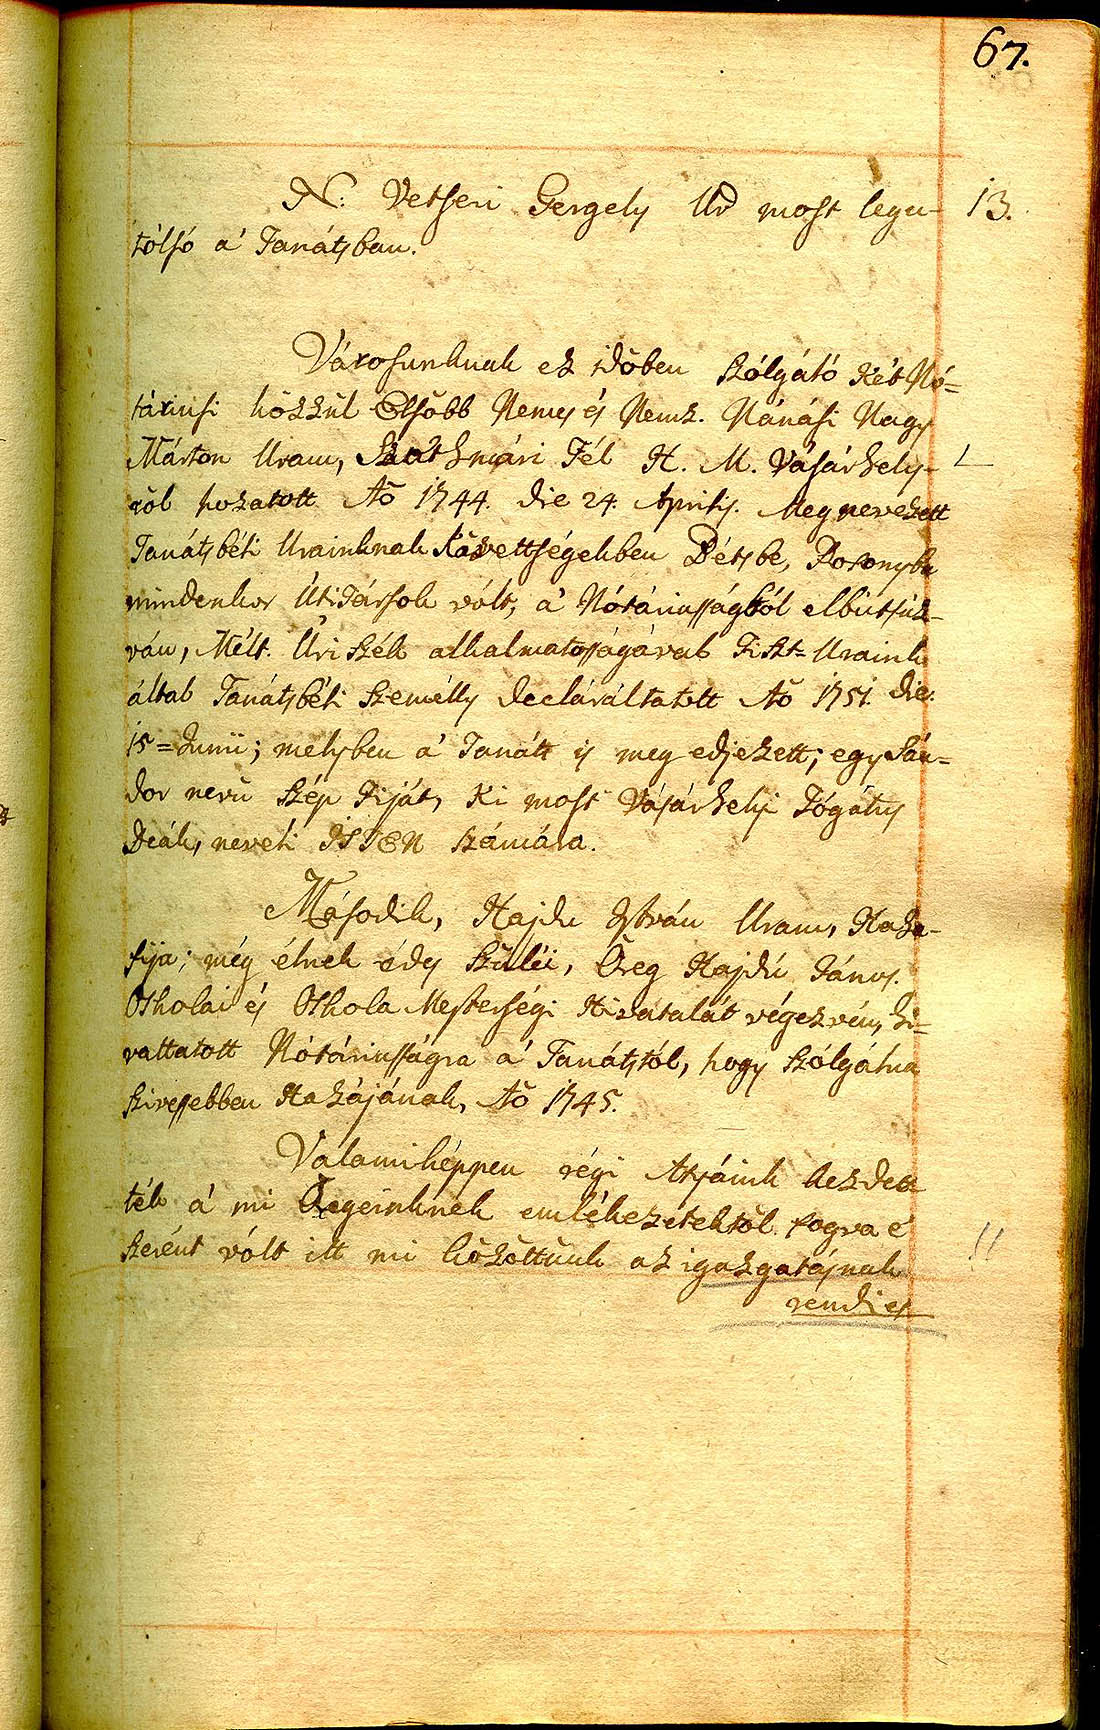 67.
N. Vetseri Gergely Ur most legu- 13.
tólsó a' Tanátsban.
Városunknak ez időben szólgáló két Nó=
táriusi közzűl Elsőbb Nemes és Nemz. Nánási Nagy
Márton Uram, Szathmári Fél H. M. Vásárhely-
ről hozatott Aō 1744. die 24. Aprilis. Meg nevezett
Tanátsbéli Urainknak Követtségekben Bétsbe, Posonyba
mindenkor Úti Társok vólt, a' Nótáriusságból elbútsúz-
ván, Mélt. Úri Szék alkalmatosságával Tiszt=Uraink
által Tanátsbéli Személly declaráltatott Aō 1751. die.
15=Junii; melyben a' Tanáts is meg edjezett; egy Sán=
dor nevű szép Fiját, ki most Vásárhelyi Tógátus
Deák, neveli ISTEN számára.
Második, Hajdu István Uram, Haza-
fija; még élnek édes Szűléi, Öreg Hajdú János.
Oskolai és Oskola Mesterségi Hivatalát végezvén, hi=
vattatott Nótáriusságra a' Tanátstól, hogy szólgálna
szivessebben Hazájának, Aō 1745.
Valamiképpen régi Atyáink kezdet
ték a' mi Öregeinknek emlékezetektől fogva é
szerént vólt itt mi közöttünk az igazgatásnak
rendi es